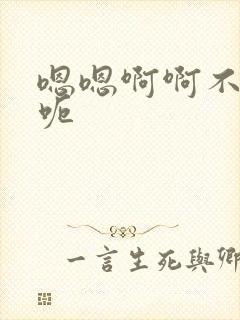 嗯嗯啊啊不
呃
一言生死與卿